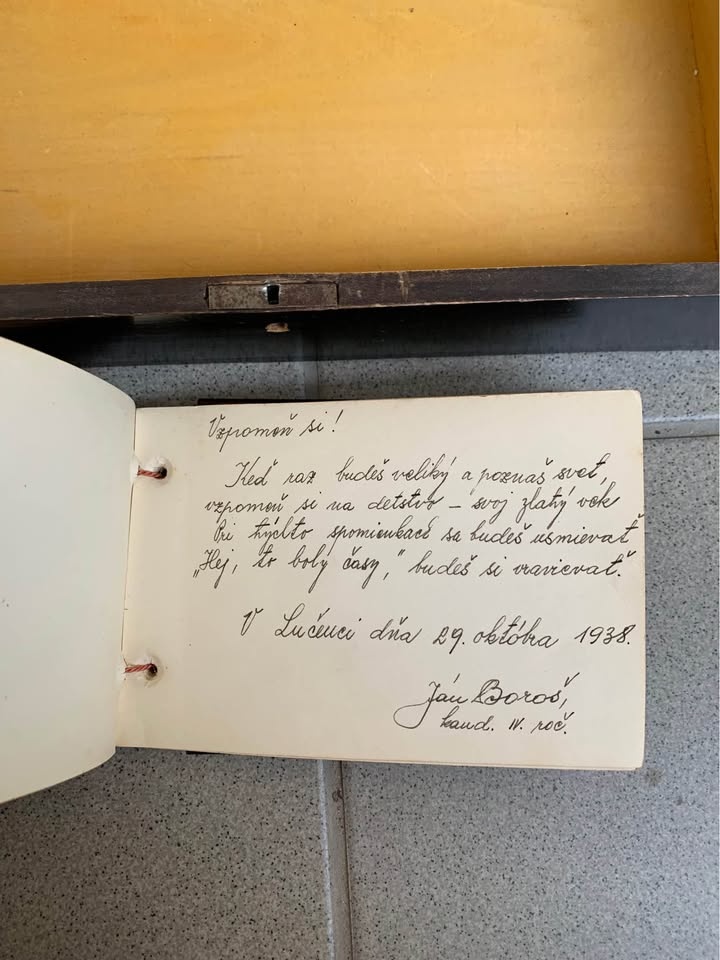 Vzpomeň si!
Keď raz budeš veliký a poznaš svet,
vzpomeň si na detstvo – svoj zlatý vek
Pri týchto spomienkach sa budeš usmievať
„Hej, to boly časy," budeš si vravievať.
V Lučenci dňa 29. októbra 1938.
Ján Boroš,
kand. IV. roč.